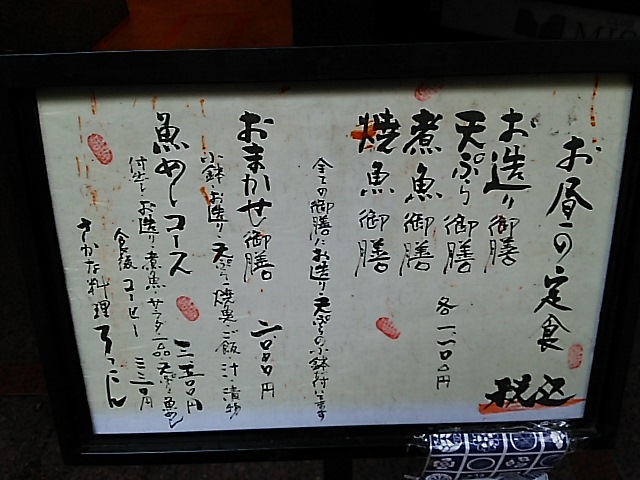 お昼の定食
税込
お造り御膳
天ぷら御膳
煮魚御膳
焼魚御膳
各一一〇〇円
全ての御膳にお造り天ぷらの小鉢付きます
おまかせ御膳 二〇〇〇円
小鉢・お造り・天ぷら・焼魚・ご飯・汁・漬物
魚めしコース 三三〇〇円
付出し・お造り・煮魚・サラダ一品・天ぷら・魚めし
食後コーヒー 三三〇円
さかな料理